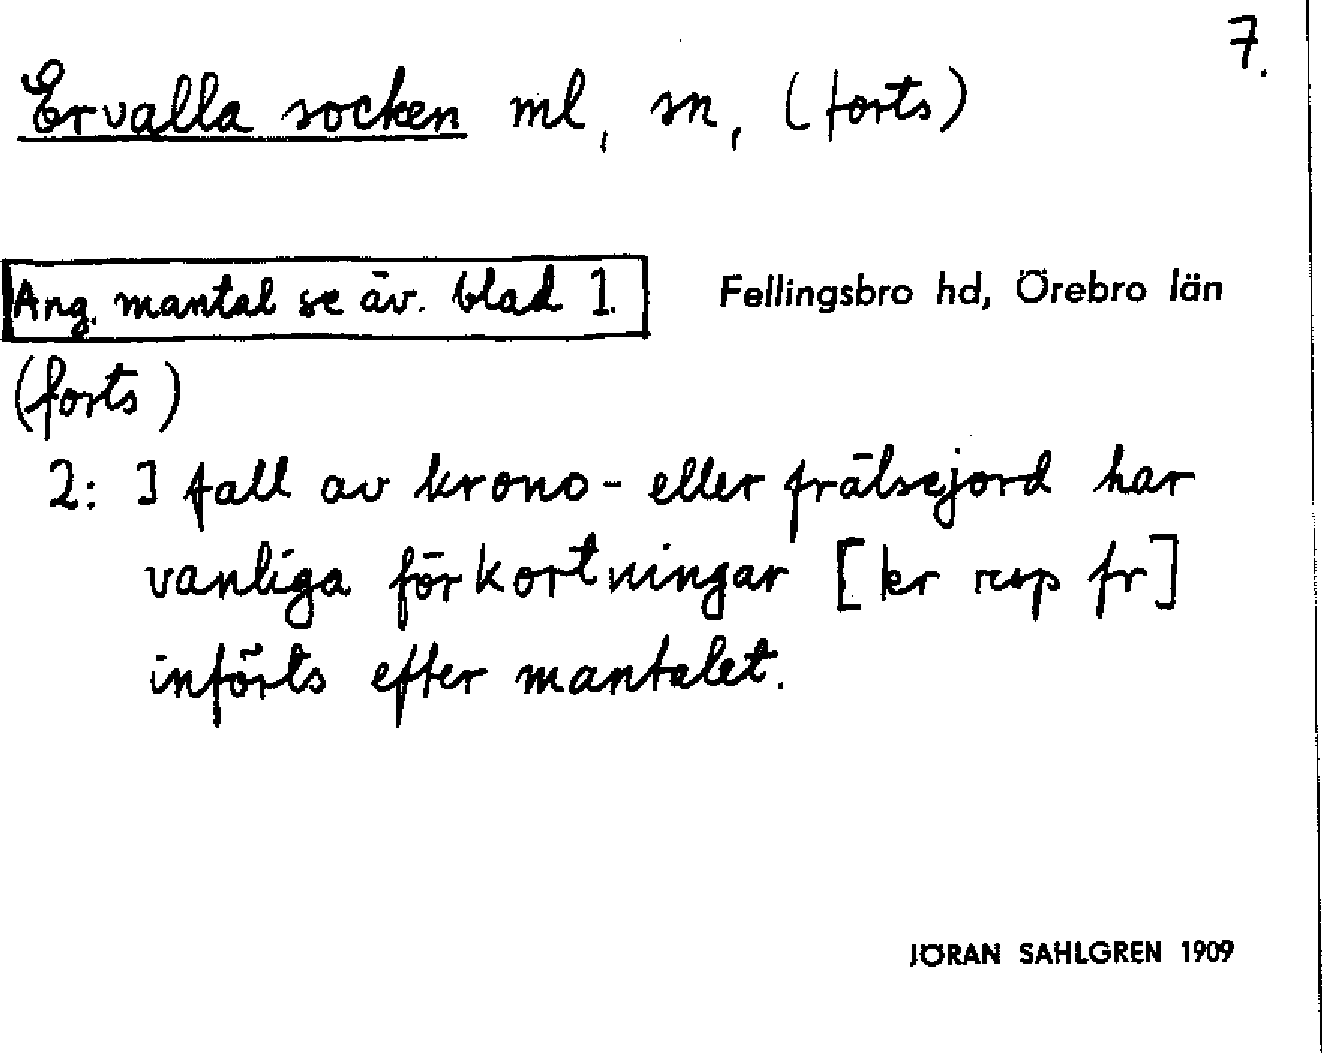 7.
Ervalla socken ml, sn, (forts)
Ang. mantal se äv. blad 1. Fellingsbro hd, Örebro län
(forts)
2: I fall av krono- eller frälsejord har
vanliga förkortningar [kr resp fr]
införts efter mantalet.
JÖRAN SAHLGREN 1909